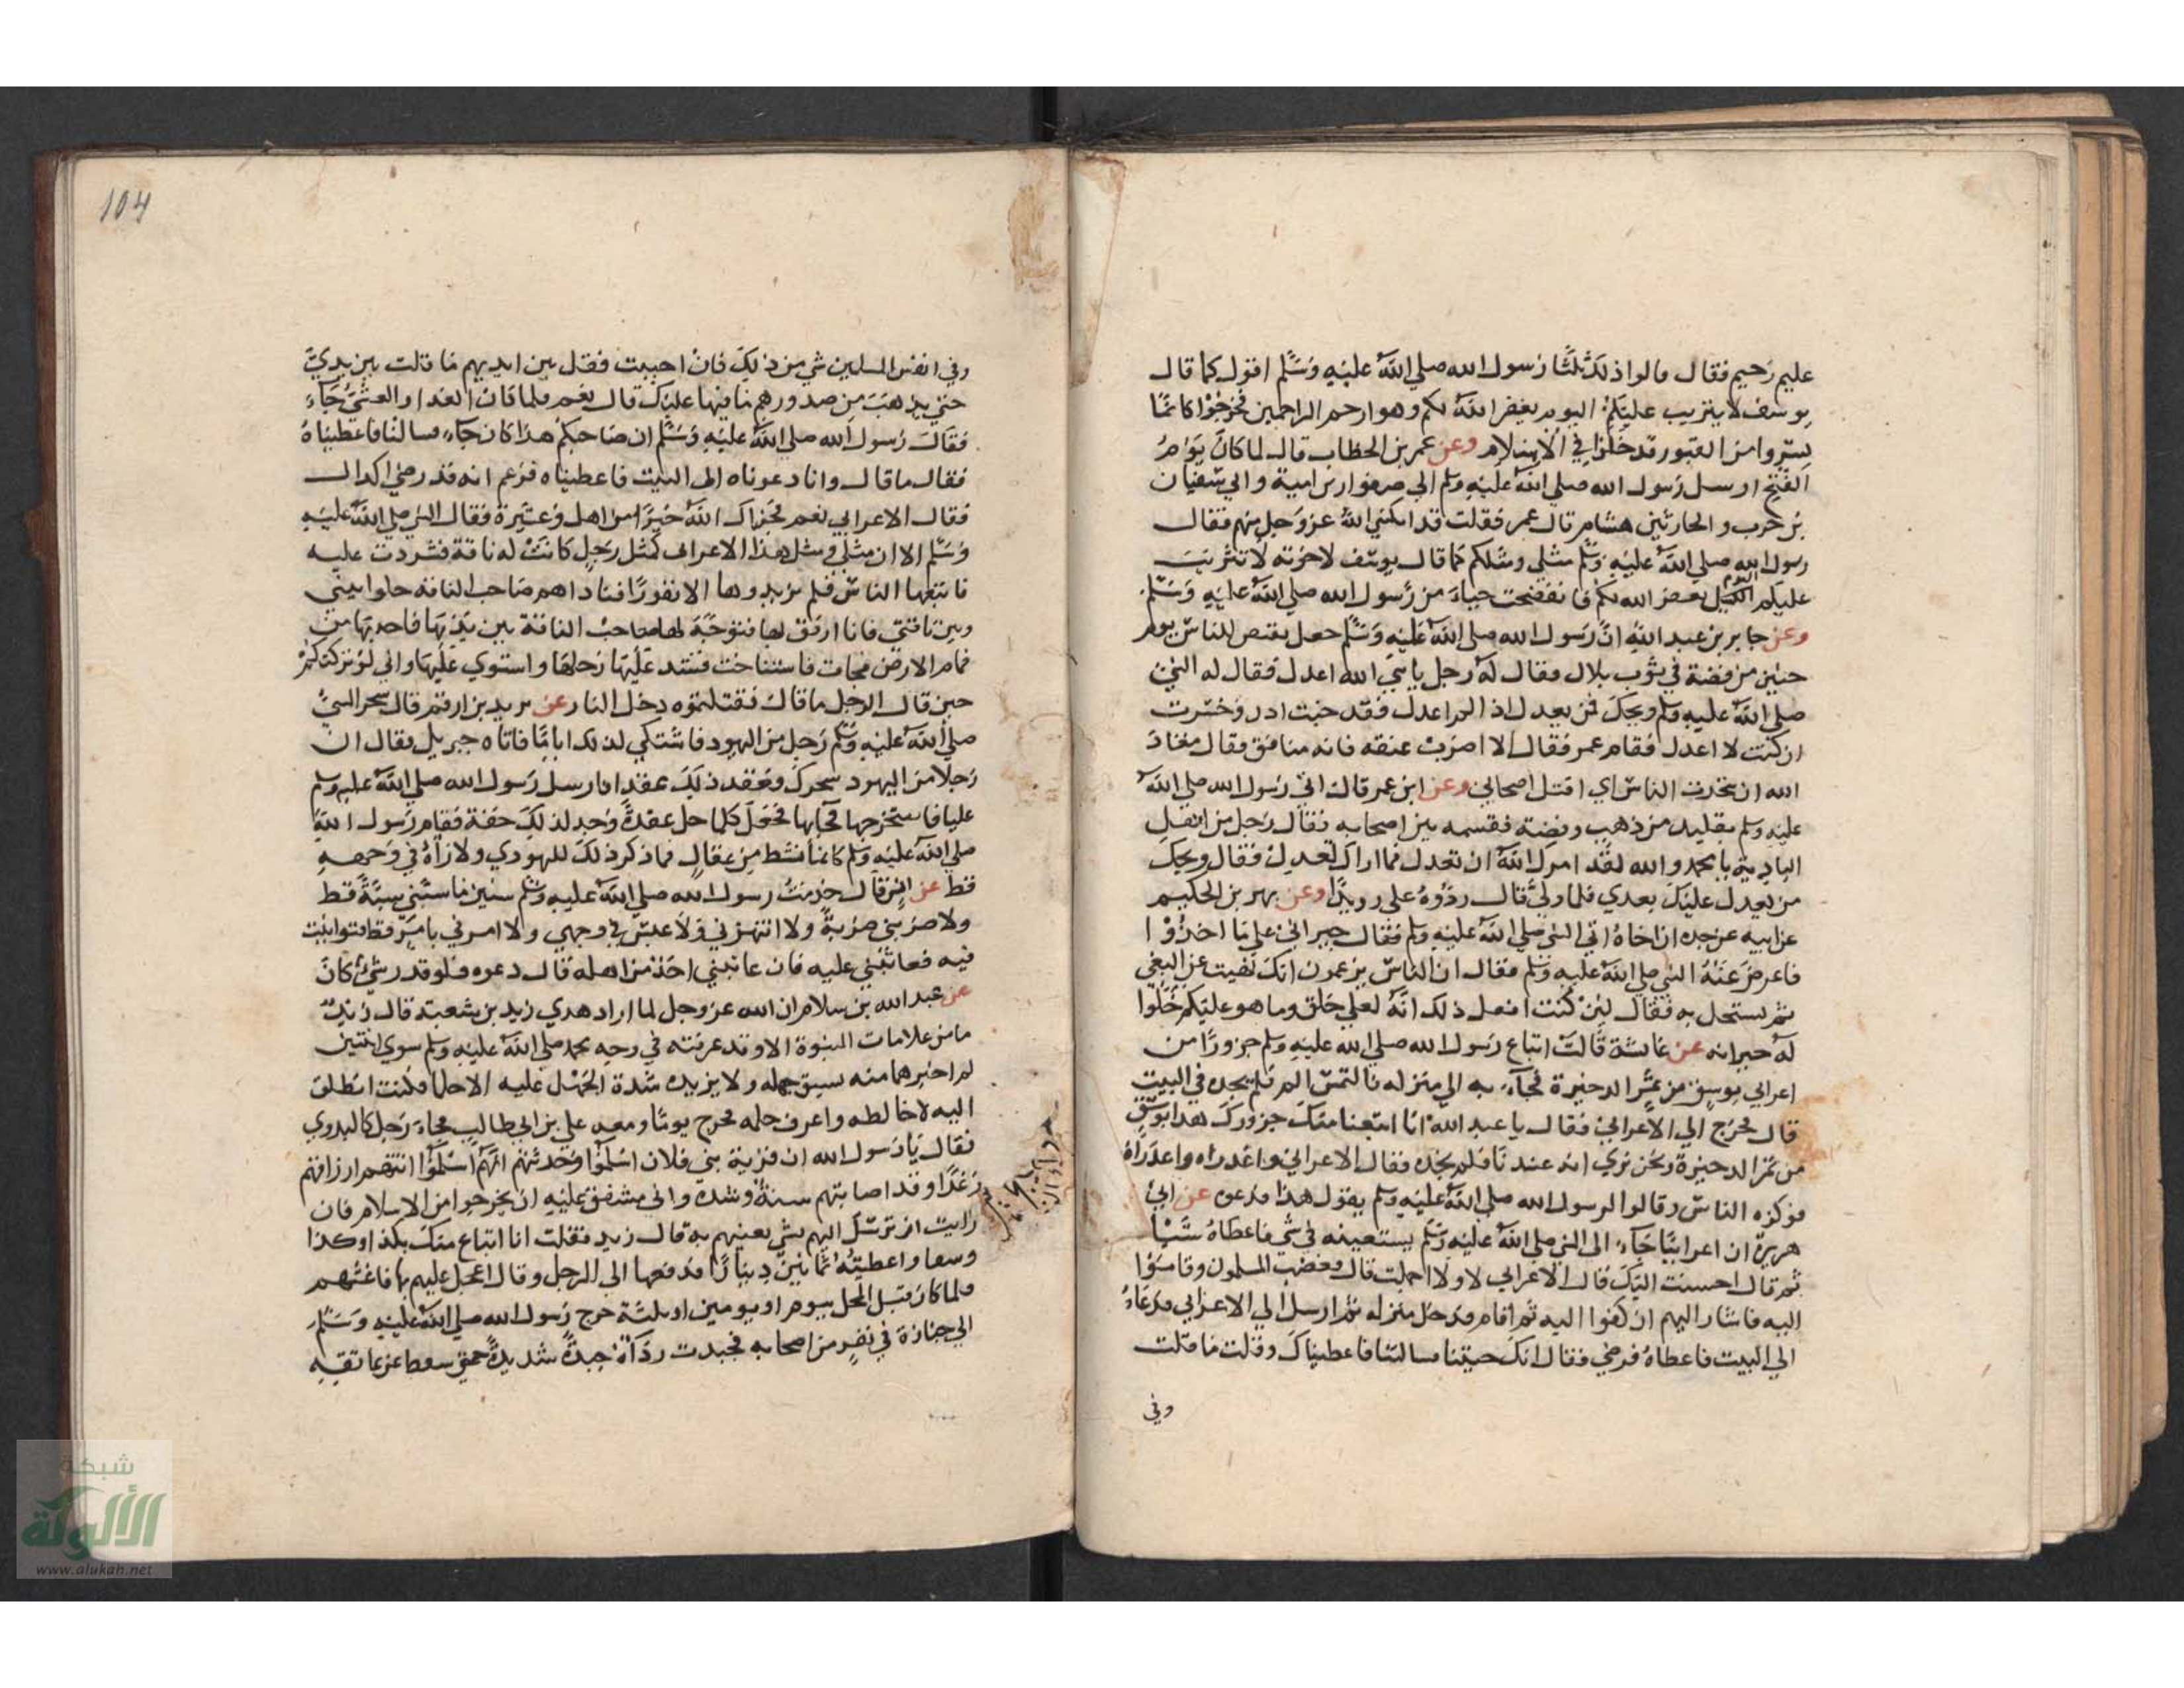 عليم رحيم فقال قالوا ذلك ثلثا رسول الله صلي الله عليه وسلم اقول كما قال
يوسف لا يتريب عليكم اليوم يغفر الله لكم وهو ارحم الراحمين فخرجوا كانما
نشروا من القبور فدخلوا في الاسلام وعن عمر بن الخطاب قال لما كان يوم
الفتح ارسل رسول الله صلي الله عليه وسلم الي صفوان بن امية والي سفيان
بن حرب والحارث بن هشام قال عمر فقلت قد امكنني الله عز وجل منهم فقال
رسول الله صلي الله عليه وسلم مثلي ومثلكم كما قال يوسف لاخوته لا تثريب
عليكم اليوم يغفر الله لكم فانفضحت حياء من رسول الله صلي الله عليه وسلم
وعن جابر بن عبد الله ان رسول الله صلي الله عليه وسلم جعل يقبض للناس يوم
حنين من فضة في ثوب بلال فقال له رجل يا نبي الله اعدل فقال له النبي
صلي الله عليه وسلم ويحك فمن يعدل اذا لم اعدل فقد خبت اذن وخسرت
ان كنت لا اعدل فقام عمر فقال الا اضرب عنقه فانه منافق فقال معاذ
الله ان يتحدث الناس اني اقتل اصحابي وعن ابن عمر قال اتي رسول الله صلي الله
عليه وسلم بقليد من ذهب وفضة فقسمه بين اصحابه فقال رجل من اهل
البادية يا محمد والله لقد امرك الله ان تعدل فما اراك تعدل فقال ويحك
من يعدل عليك بعدي فلما ولي قال ردوه علي رويدا وعن بهز بن الحكيم
عن ابيه عن جده ان اخاه اتي النبي صلي الله عليه وسلم فقال جيراني علي ما اخذوا
فاعرض عنه النبي صلي الله عليه وسلم فقال ان الناس يزعمون انك نهيت عن البغي
ثم تستحل به فقال لئن كنت افعل ذلك انه لعلي خلق وما هو عليكم خلوا
له جيرانه عن عائشة قالت ابتاع رسول الله صلي الله عليه وسلم جزورا من
اعرابي بوسق من تمر الدخيرة فجاء به الي منزله فالتمس التمر فلم يجده في البيت
قال فخرج الي الاعرابي فقال يا عبد الله انا ابتعنا منك جزورك هذا بوسق
من تمر الدخيرة ونحن نري انه عندنا فلم نجده فقال الاعرابي واغدراه واغدراه
فوكزه الناس وقالوا لرسول الله صلي الله عليه وسلم يقول هذا فدعوه عن ابي
هريرة ان اعرابيا جاء الي النبي صلي الله عليه وسلم يستعينه في شي فاعطاه شيا
ثم قال احسنت اليك قال الاعرابي لا ولا اجملت قال فغضب المسلمون وقاموا
اليه فاشار اليهم ان كفوا اليه ثم قام فدخل منزله ثم ارسل الي الاعرابي فدعاه
الي البيت فاعطاه فرضي فقال انك جيتنا فسالتنا فاعطيناك وقلت ما قلت
وفي
104
وفي انفس المسلمين شي من ذلك فان احببت فقل بين ايديهم ما قلت بين يدي
حتي يذهب من صدورهم ما فيها عليك قال نعم فلما كان الغد او العشي جاء
فقال رسول الله صلي الله عليه وسلم ان صاحبكم هذا كان جاء فسالنا فاعطيناه
فقال ما قال وانا دعوناه الي البيت فاعطيناه فزعم انه قد رضي اكذلك
فقال الاعرابي نعم فجزاك الله خيرا من اهل وعشيرة فقال النبي صلي الله عليه
وسلم الا ان مثلي ومثل هذا الاعرابي كمثل رجل كانت له ناقة فشردت عليه
فاتبعها الناس فلم يزيدوها الا نفورا فناداهم صاحب الناقة خلوا بيني
وبين ناقتي فانا ارفق بها فتوجه لها صاحب الناقة بين يديها فاخذ لها من
قمام الارض فجات فاستناخت فشد عليها رحلها واستوي عليها واني لو تركتكم
حين قال الرجل ما قال فقتلتموه دخل النار عن يزيد بن ارقم قال سحر النبي
صلي الله عليه وسلم رجل من اليهود فاشتكي لذلك اياما فاتاه جبريل فقال ان
رجلا من اليهود سحرك وعقد لك عقدا فارسل رسول الله صلي الله عليه وسلم
عليا فاستخرجها فجابها فجعل كلما حل عقدة وجد لذلك خفة فقام رسول الله
صلي الله عليه وسلم كانما نشط من عقال فما ذكر ذلك لليهودي ولا راه في وجهه
قط عن انس قال خدمت رسول الله صلي الله عليه وسلم سنين فما سبني سبة قط
ولا ضربني ضربة ولا انتهرني ولا عبس في وجهي ولا امرني بامر قط فتوانيت
فيه فعاتبني عليه فان عاتبني احد من اهله قال دعوه فلو قدر شي كان
عن عبد الله بن سلام ان الله عز وجل لما اراد هدي زيد بن شعبة قال زيد
ما من علامات النبوة الا وقد عرفته في وجه محمد صلي الله عليه وسلم سوي اثنتين
لم اخبرهما منه يسبق جهله ولا يزيده شدة الجهل عليه الا حلما فكنت انطلق
اليه لاخالطه واعرف حلمه فخرج يوما ومعه علي بن ابي طالب فجاء رجل كالبدوي
فقال يا رسول الله ان قرية بني فلان اسلموا وحدثتهم انهم اسلموا اتتهم ارزاقهم
رغدا وقد اصابتهم سنة وشدة واني مشفق عليه ان يخرجوا من الاسلام فان
رايت ان ترسل اليهم بشي يعينهم به قال زيد فقلت انا ابتاع منك بكذا وكذا
وسقا واعطيته ثمانين دينارا فدفعها الي الرجل وقال اعجل عليهم بها فاغثهم
فلما كان قبل المحل بيوم او يومين او ثلثة خرج رسول الله صلي الله عليه وسلم
الي جنازة في نفر من اصحابه فجبدت رداه جبدة شديدة حتي سقط عن عاتقه
شبكة
الألوكة
www.alukah.net